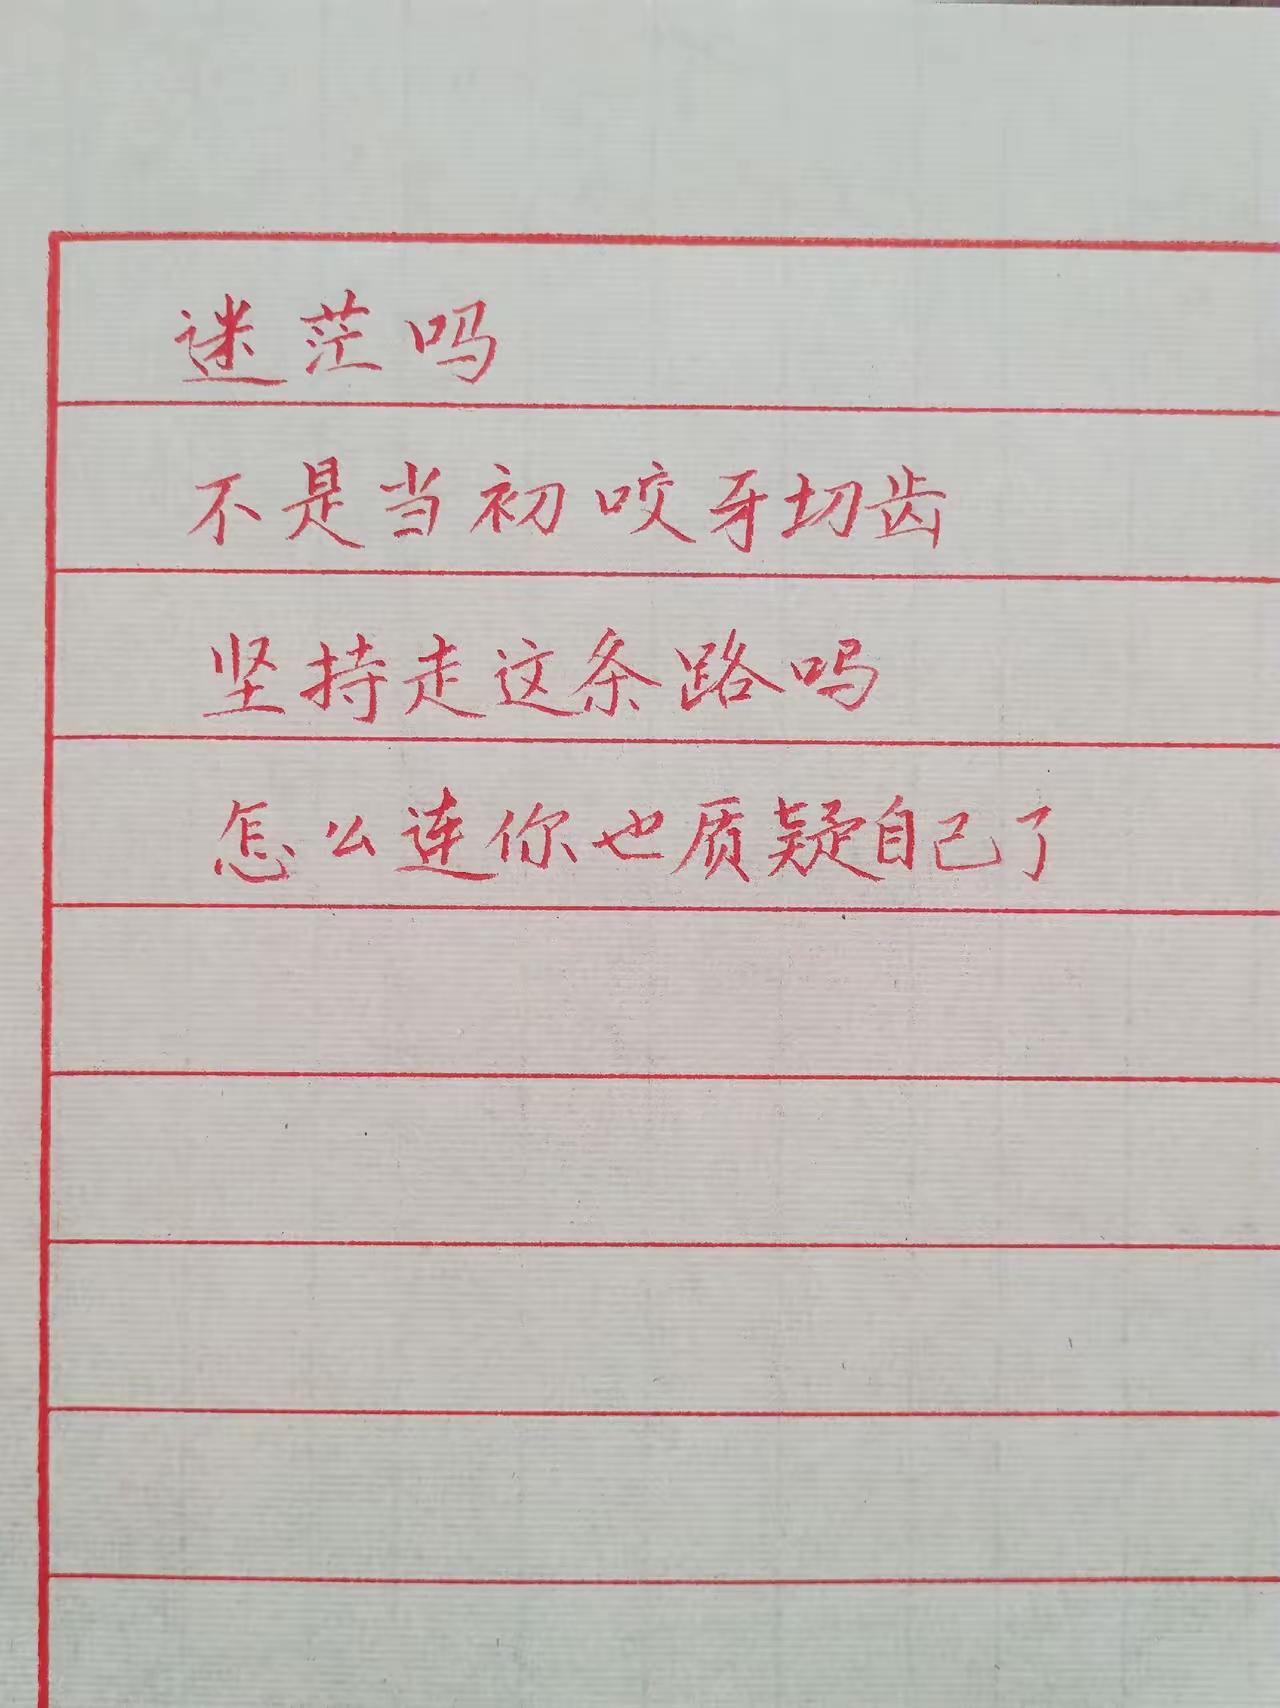 迷茫吗
不是当初咬牙切齿
坚持走这条路吗
怎么连你也质疑自己了